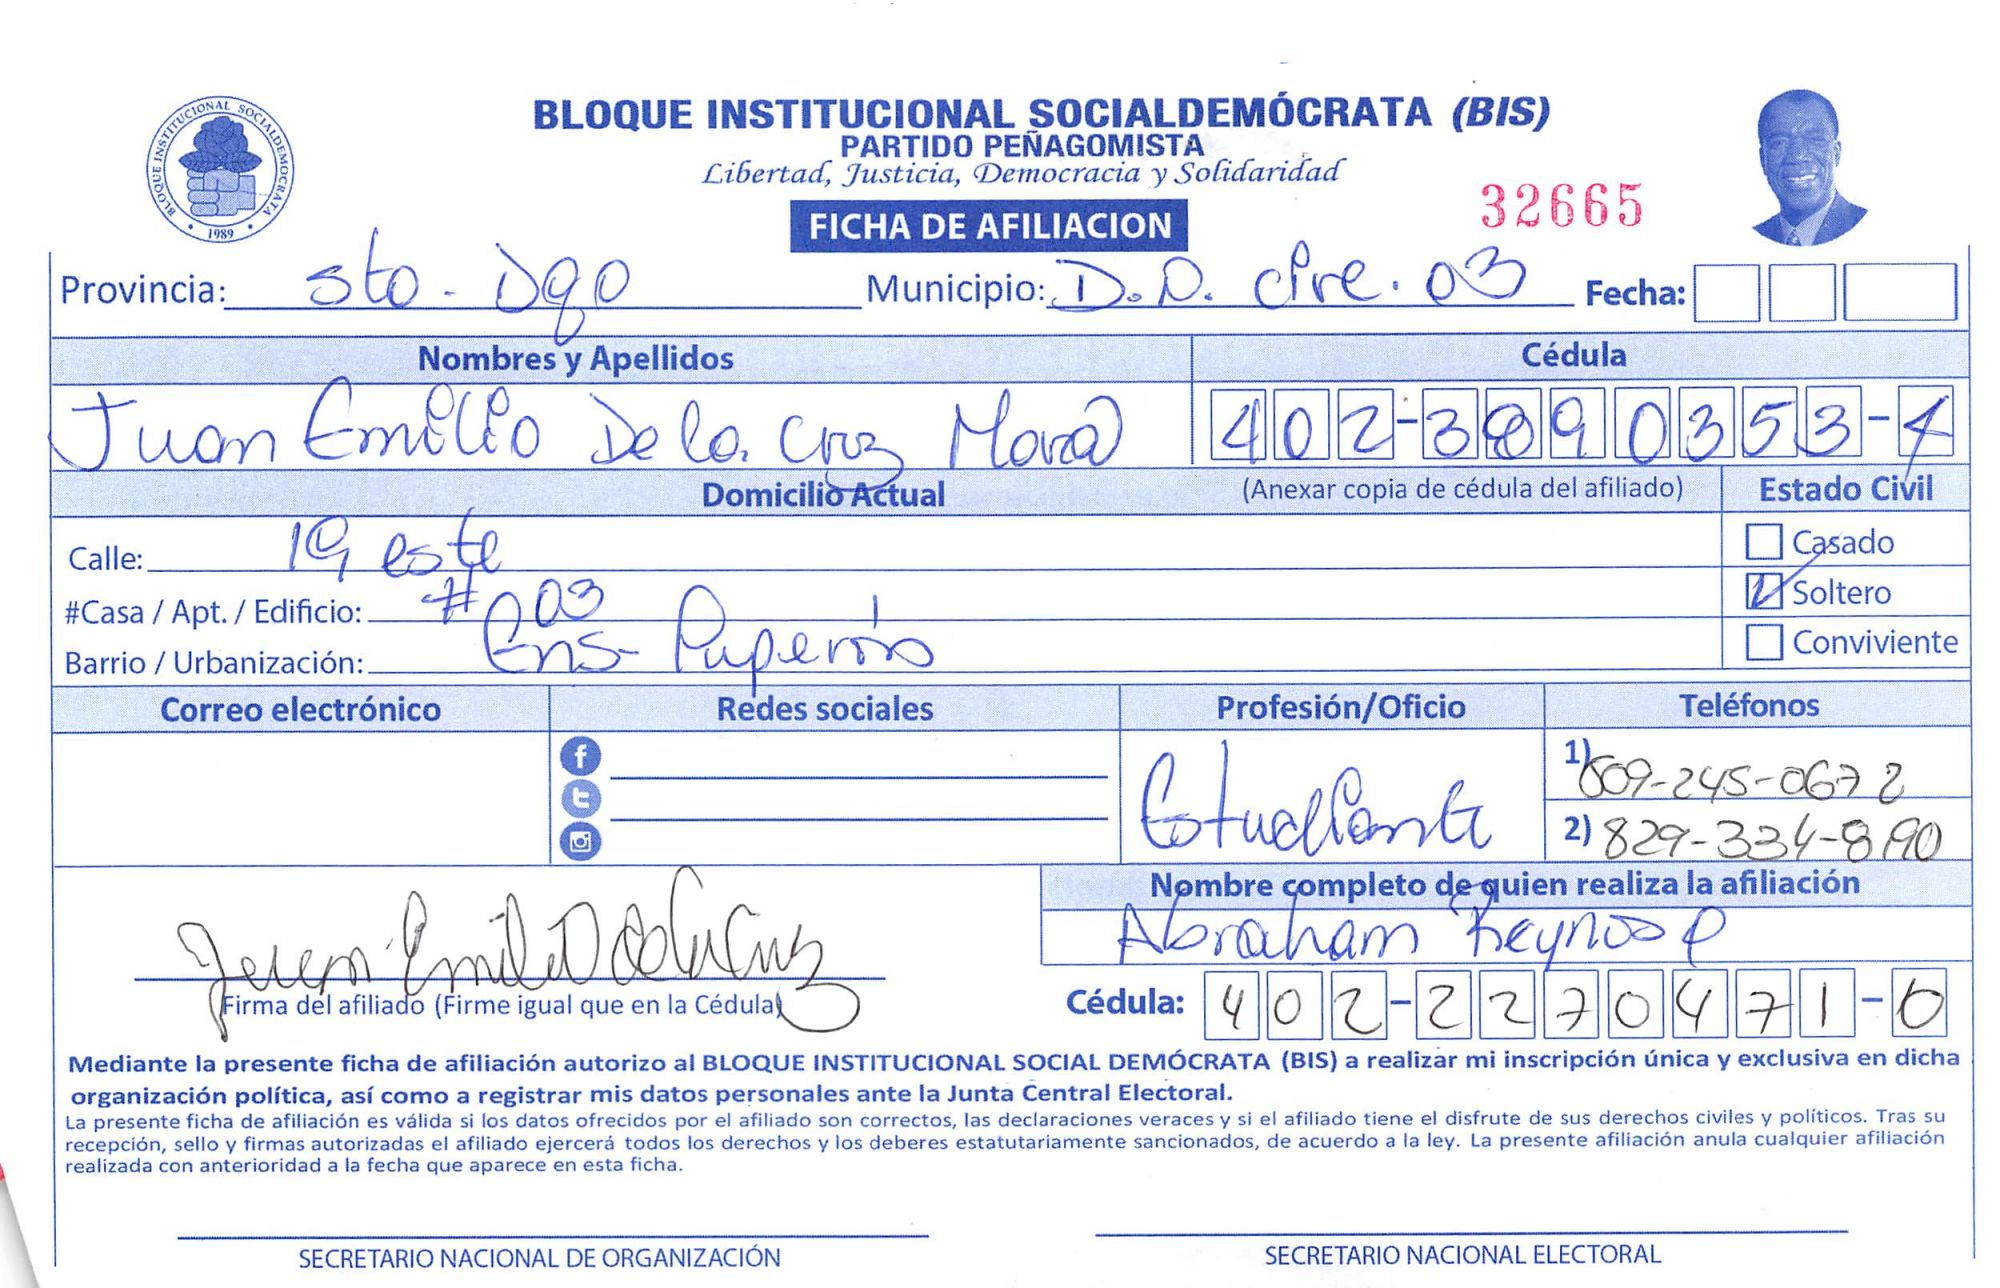 BLOQUE INSTITUCIONAL SOCIALDEMOCRATA
1989
BLOQUE INSTITUCIONAL SOCIALDEMÓCRATA (BIS)
PARTIDO PEÑAGOMISTA
Libertad, Justicia, Democracia y Solidaridad
32665
FICHA DE AFILIACION
Provincia: Sto. Dgo Municipio: D.N. circ. 03 Fecha:
Nombres y Apellidos Cédula
Juan Emilio De la Cruz 402-3 90353-
Domicilio Actual (Anexar copia de cédula del afiliado) Estado Civil
Calle: 19 este Casado
#Casa / Apt. / Edificio: # 03 Soltero
Barrio / Urbanización: Ens-
Conviviente
Correo electrónico Redes sociales Profesión/Oficio Teléfonos
Estudiante
1) 809-245-0672
2) 829-334-
Nombre completo de quien realiza la afiliación
Abraham Reynoso P
Emilio De la Cruz
Firma del afiliado (Firme igual que en la Cédula)
Cédula: 402-2270471-0
Mediante la presente ficha de afiliación autorizo al BLOQUE INSTITUCIONAL SOCIAL DEMÓCRATA (BIS) a realizar mi inscripción única y exclusiva en dicha
organización política, así como a registrar mis datos personales ante la Junta Central Electoral.
La presente ficha de afiliación es válida si los datos ofrecidos por el afiliado son correctos, las declaraciones veraces y si el afiliado tiene el disfrute de sus derechos civiles y políticos. Tras su
recepción, sello y firmas autorizadas el afiliado ejercerá todos los derechos y los deberes estatutariamente sancionados, de acuerdo a la ley. La presente afiliación anula cualquier afiliación
realizada con anterioridad a la fecha que aparece en esta ficha.
SECRETARIO NACIONAL DE ORGANIZACIÓN SECRETARIO NACIONAL ELECTORAL